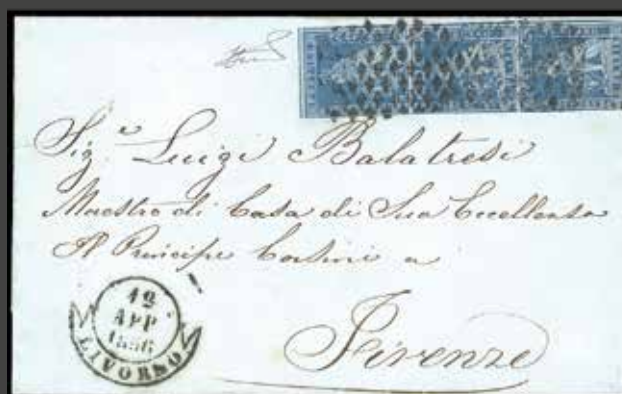 Sig.e Luigi Balatresi
Maestro di Casa di Sua Eccellenza
Il Principe Corsini a
Firenze
12
APR
1856
LIVORNO